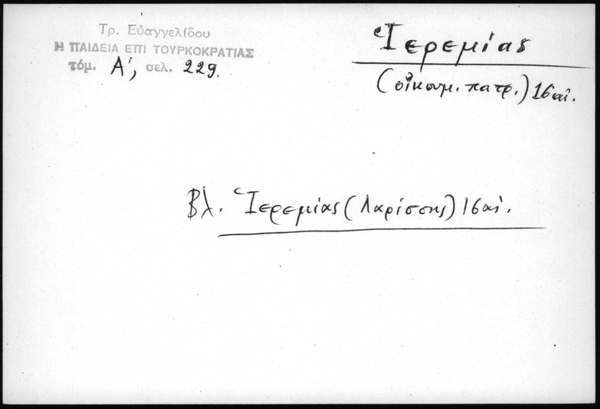 Τρ. Εὐαγγελίδου
Η ΠΑΙΔΕΙΑ ΕΠΙ ΤΟΥΡΚΟΚΡΑΤΙΑΣ
τόμ. Α', σελ. 229.
Ἱερεμίας
(οἰκουμ. πατρ.) 16 αἰ.
Βλ. Ἱερεμίας (Λαρίσσης) 16 αἰ.